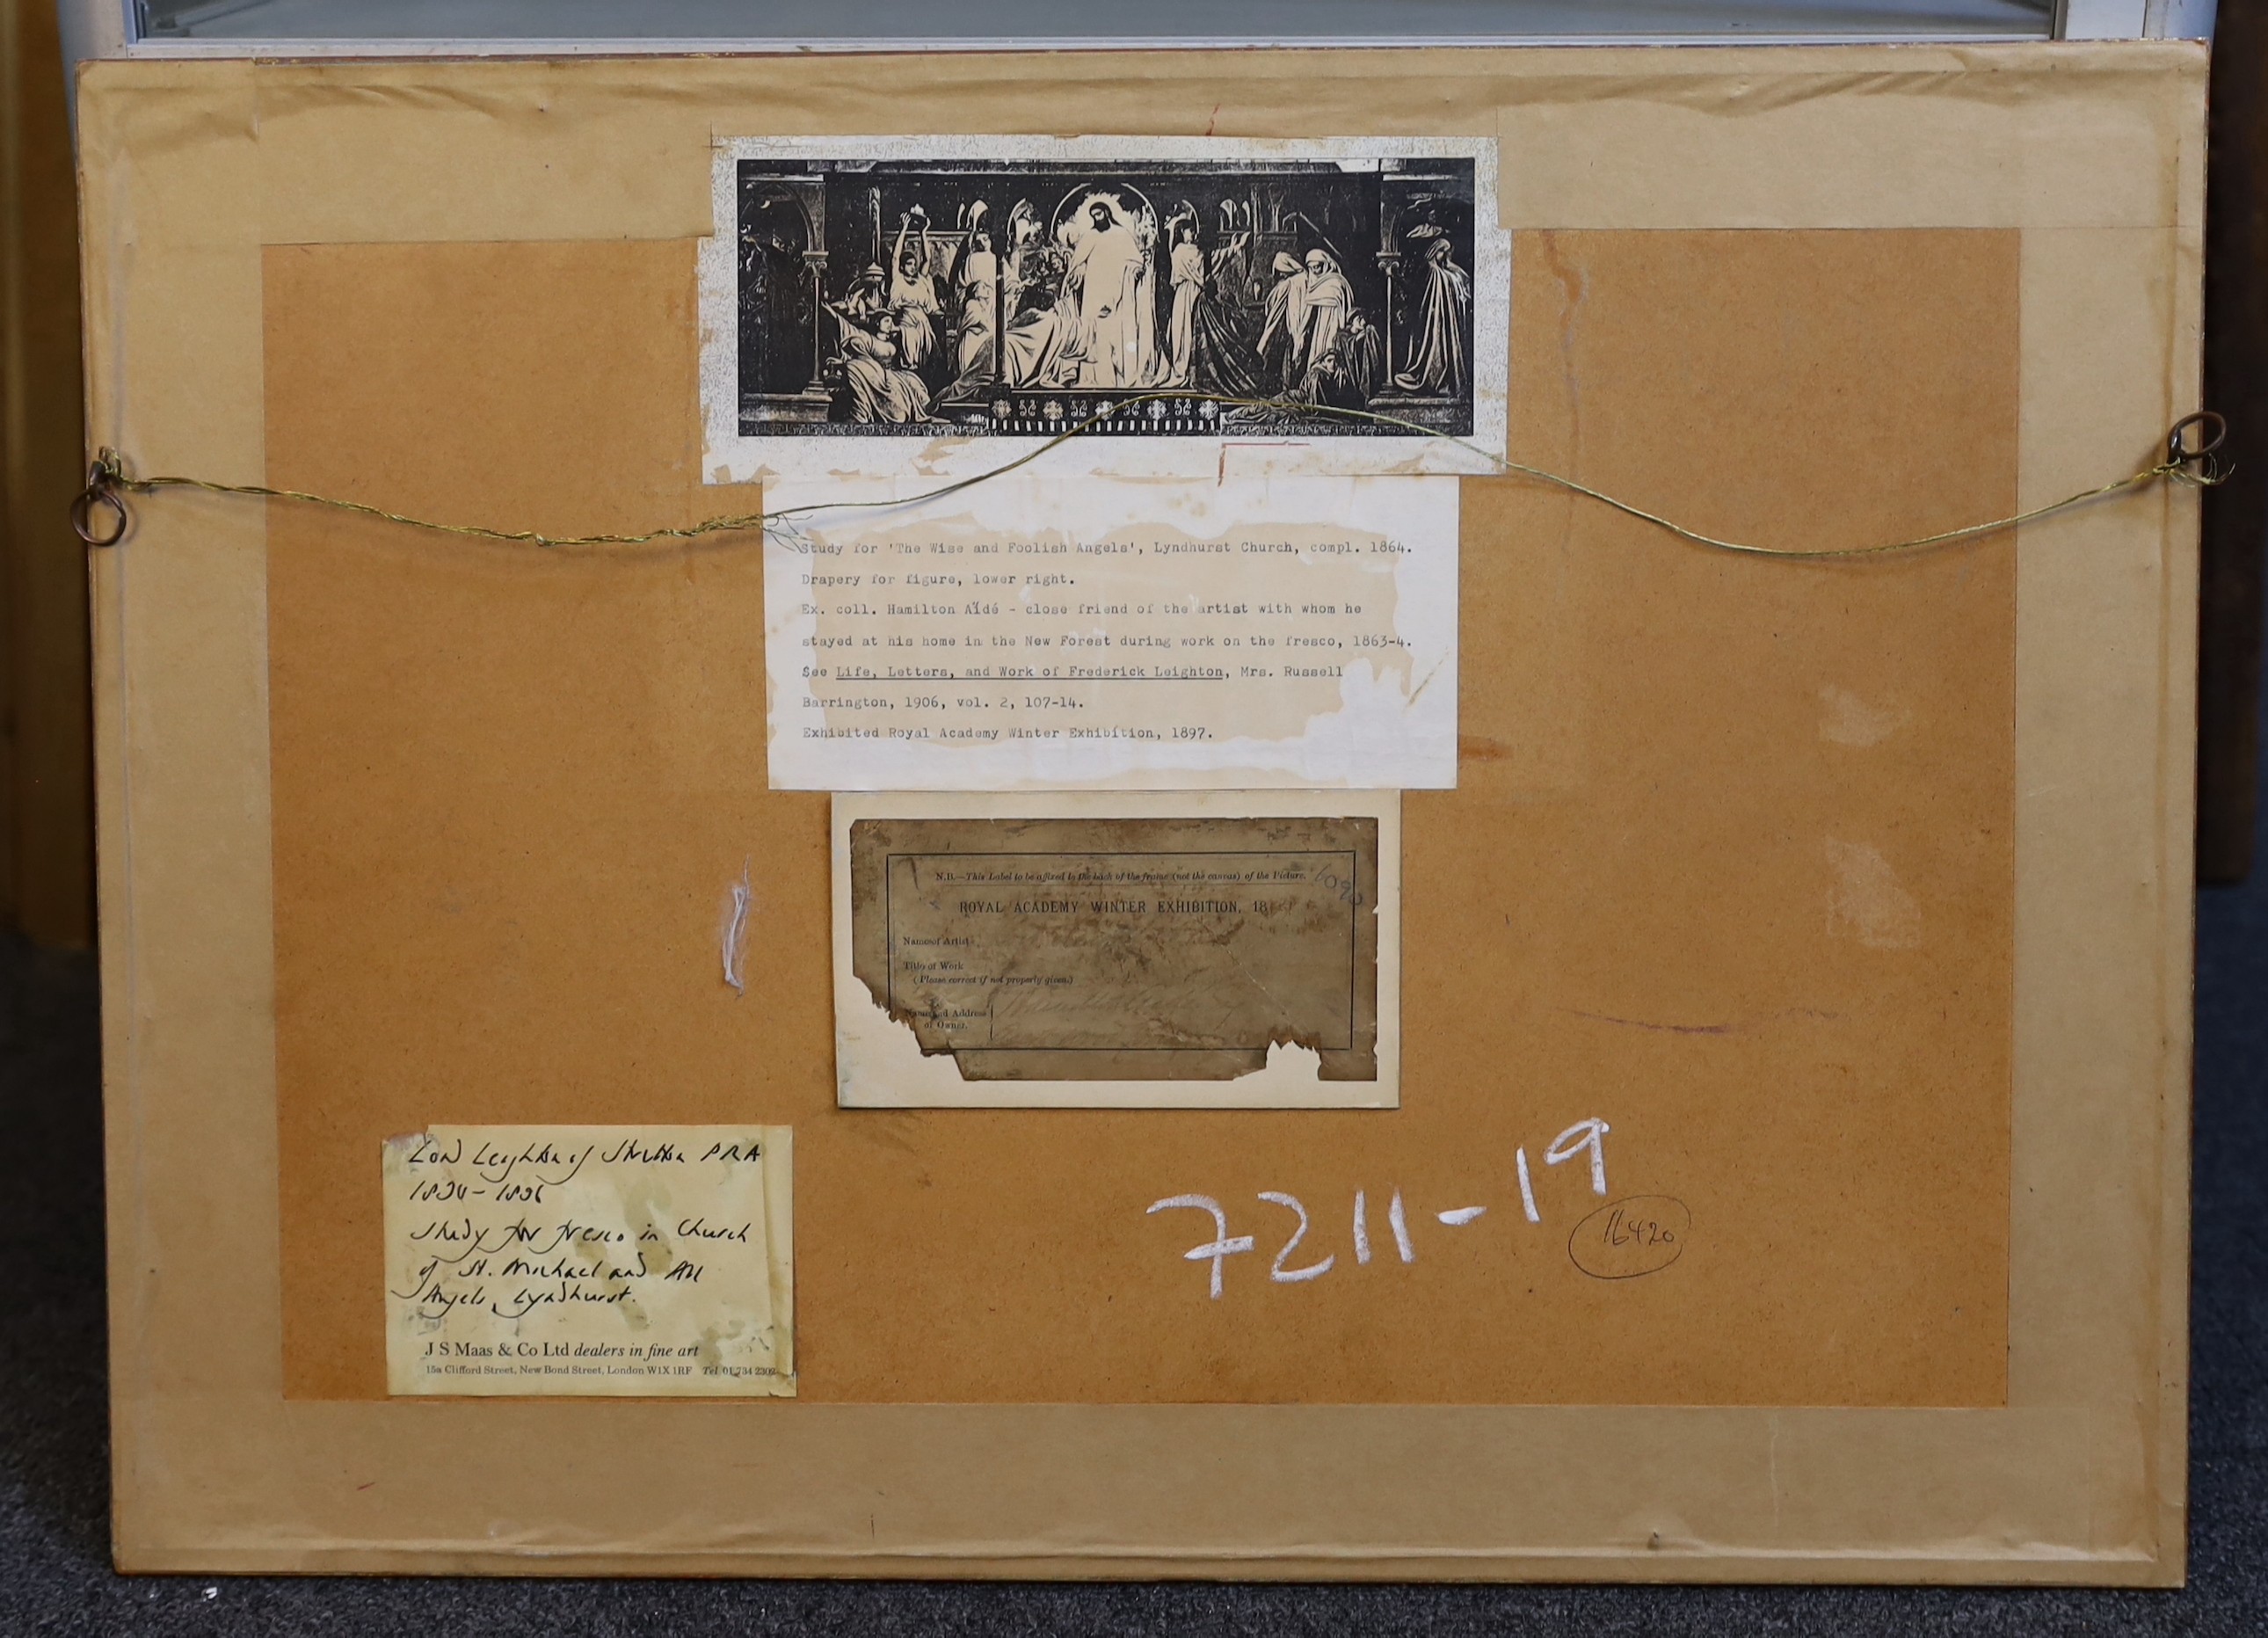 Study for 'The Wise and Foolish Angels', Lyndhurst Church, compl. 1864.
Drapery for figure, lower right.
Ex. coll. Hamilton Aïdé - close friend of the artist with whom he
stayed at his home in the New Forest during work on the fresco, 1863-4.
See Life, Letters, and Work of Frederick Leighton, Mrs. Russell
Barrington, 1906, vol. 2, 107-14.
Exhibited Royal Academy Winter Exhibition, 1897.
N.B.—This Label to be affixed to the back of the frame (not the canvas) of the Picture.
6090
ROYAL ACADEMY WINTER EXHIBITION, 18
Name of Artist
Title of Work
(Please correct if not properly given.)
Name and Address
of Owner.
Lord Leighton of Stretton PRA
1830-1896
Study for fresco in Church
of St. Michael and All
Angels, Lyndhurst.
J S Maas & Co Ltd dealers in fine art
15a Clifford Street, New Bond Street, London W1X 1RF Tel 01 734 2302
7211-19
16420